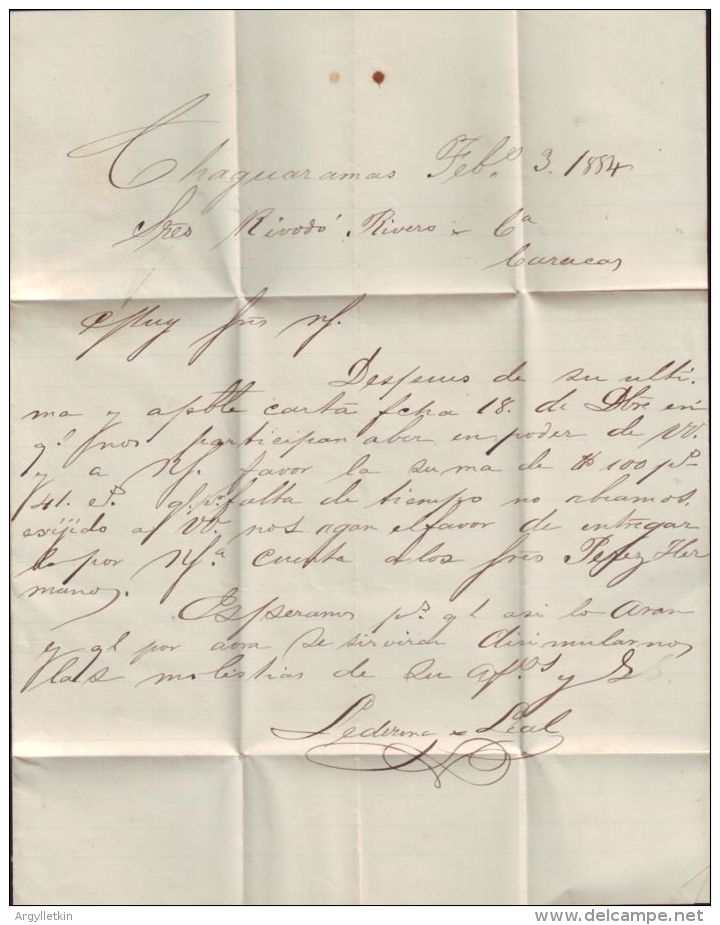 Chaguaramas Feb.º 3. 1884
Sres Rivodó, Rivero & Cª
Caracas
Muy Sres Ns.
Despues de su ulti-
ma y apble carta fcha 18. de Dbre en
q.l nos participan aber en poder de VV.
y a Ns. favor la suma de $ 100 ps
41. cs. ql. pr falta de tiempo no abiamos
exijido a VV. nos agan el favor de entregar
lo por Ns.ª cuenta a los Sres Perez Her
manos.
Esperamos ps. ql asi lo aran
y ql por aora se serviran disimularnos
las molestias de su af.mos y SS.
Ledezma & Leal
Argylletkin
delcampe.net